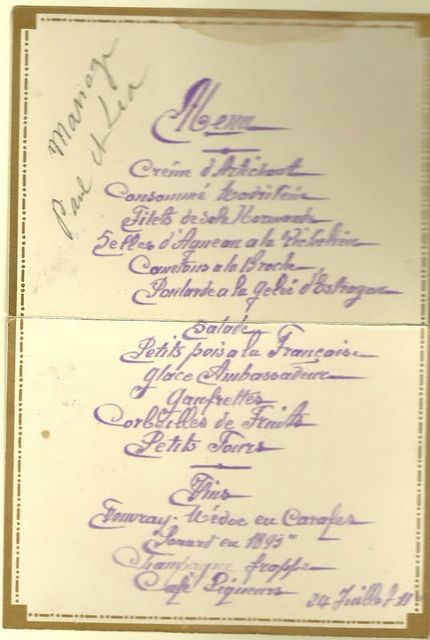 Mariage
Paul et Léa
Menu
Crème d'Artichaut
Consommé Madrilène
Filets de sole Normande
Selles d'Agneau a la Richelieu
Canetons a la Broche
Poularde a la gelée d'Estragon
Salade
Petits pois a la Française
glace Ambassadeur
gaufrettes
Corbeilles de Fruits
Petits Fours
Vins
Vouvray - Médoc en Carafes
en 1895"
Champagne frappé
Café Liqueurs
24 Juillet 11